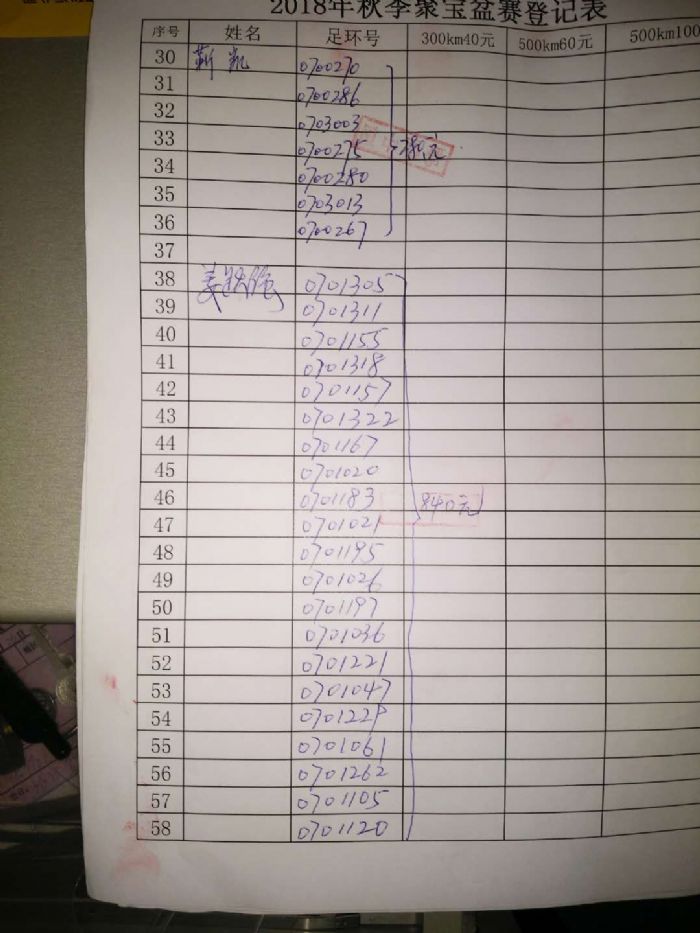 2018年秋季聚宝盆赛登记表
序号 姓名 足环号 300km40元 500km60元 500km100
30 靳凯 0700270
31 0700286
32 0703003
33 0700275 280元
34 0700280
35 0703013
36 0700267
37
38 0701305
39 0701311
40 0701155
41 0701318
42 0701157
43 0701322
44 0701167
45 0701020
46 0701183 840元
47 0701021
48 0701195
49 0701026
50 0701197
51 0701036
52 0701221
53 0701047
54 0701229
55 0701061
56 0701262
57 0701105
58 0701120